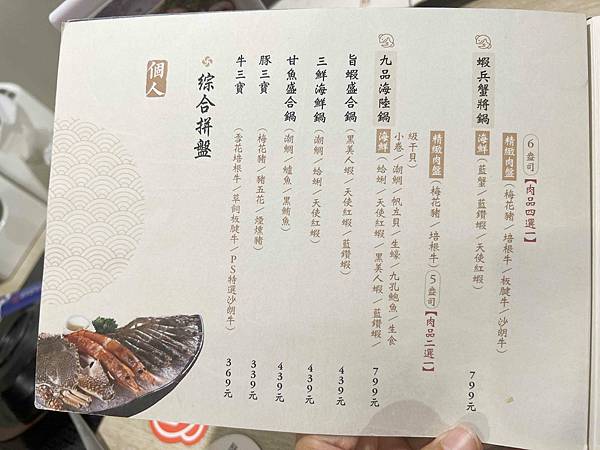 蝦兵蟹將鍋
6盎司【肉品四選一】
精緻肉盤（梅花豬／培根牛／板腱牛／沙朗牛）
海鮮（藍蟹／藍鑽蝦／天使紅蝦）
799元
九品海陸鍋
精緻肉盤（梅花豬／培根牛）5盎司【肉品二選一】
海鮮（蛤蜊／天使紅蝦／黑美人蝦／藍鑽蝦／
小卷／潮鯛／帆立貝／生蠔／九孔鮑魚／生食
級干貝）
799元
旨蝦盛合鍋（黑美人蝦／天使紅蝦／藍鑽蝦）
439元
三鮮海鮮鍋（潮鯛／蛤蜊／天使紅蝦）
439元
甘魚盛合鍋（潮鯛／鱸魚／黑鮪魚）
439元
豚三寶（梅花豬／豬五花／煙燻豬）
339元
牛三寶（雪花培根牛／草飼板腱牛／PS特選沙朗牛）
369元
綜合拼盤
個人